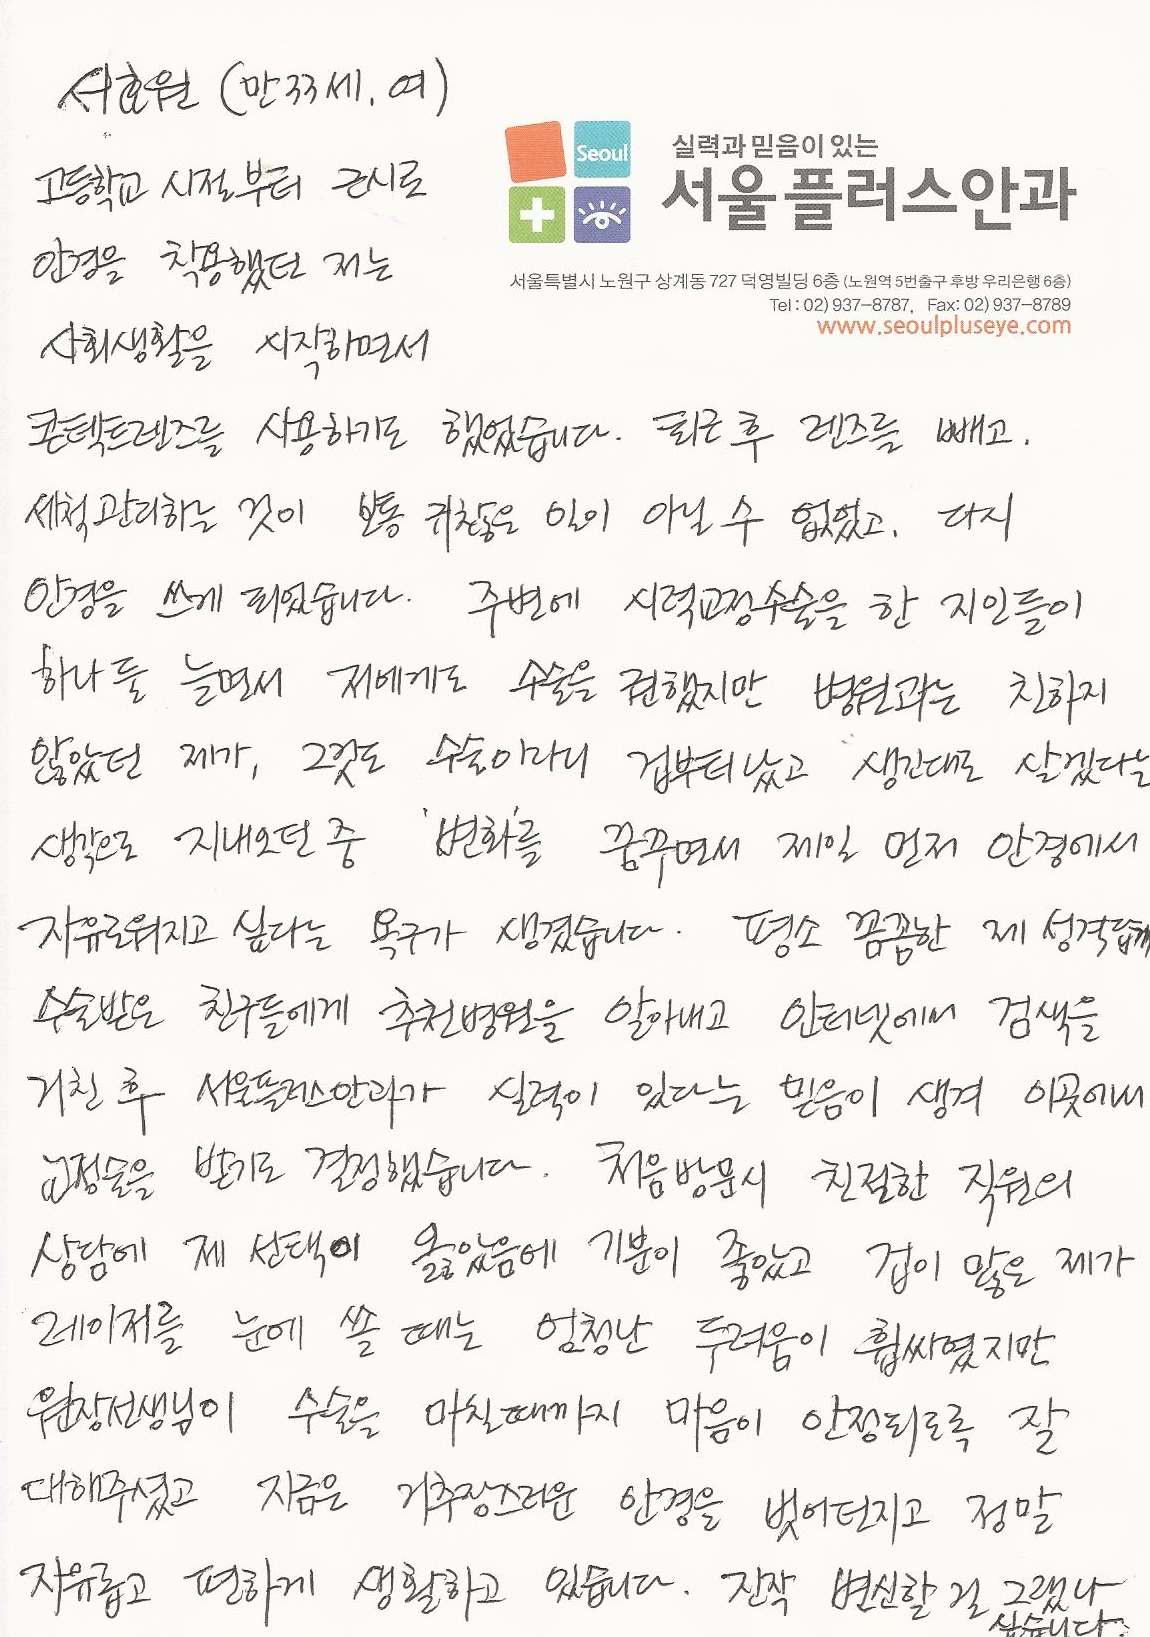 서효원 (만 33세, 여)
Seoul
실력과 믿음이 있는
서울플러스안과
서울특별시 노원구 상계동 727 덕영빌딩 6층 (노원역 5번출구 후방 우리은행 6층)
Tel : 02) 937-8787, Fax: 02) 937-8789
www.seoulpluseye.com
고등학교 시절부터 근시로
안경을 착용했던 저는
사회생활을 시작하면서
콘텍트렌즈를 사용하기도 했었습니다. 퇴근 후 렌즈를 빼고,
세척관리하는 것이 보통 귀찮은 일이 아닐 수 없었고, 다시
안경을 쓰게 되었습니다. 주변에 시력교정수술을 한 지인들이
하나 둘 늘면서 저에게도 수술을 권했지만 병원과는 친하지
않았던 제가, 그것도 수술이라니 겁부터 났고 생긴대로 살겠다는
생각으로 지내오던 중 '변화'를 꿈꾸면서 제일 먼저 안경에서
자유로워지고 싶다는 욕구가 생겼습니다. 평소 꼼꼼한 제 성격답게
수술받은 친구들에게 추천병원을 알아내고 인터넷에서 검색을
거친 후 서울플러스안과가 실력이 있다는 믿음이 생겨 이곳에서
교정술을 받기로 결정했습니다. 처음 방문시 친절한 직원의
상담에 제 선택이 옳았음에 기분이 좋았고 겁이 많은 제가
레이저를 눈에 쏠 때는 엄청난 두려움이 휩싸였지만
원장선생님이 수술을 마칠때까지 마음이 안정되도록 잘
대해주셨고 지금은 거추장스러운 안경을 벗어던지고 정말
자유롭고 편하게 생활하고 있습니다. 진작 변신할 걸 그랬나
싶습니다.